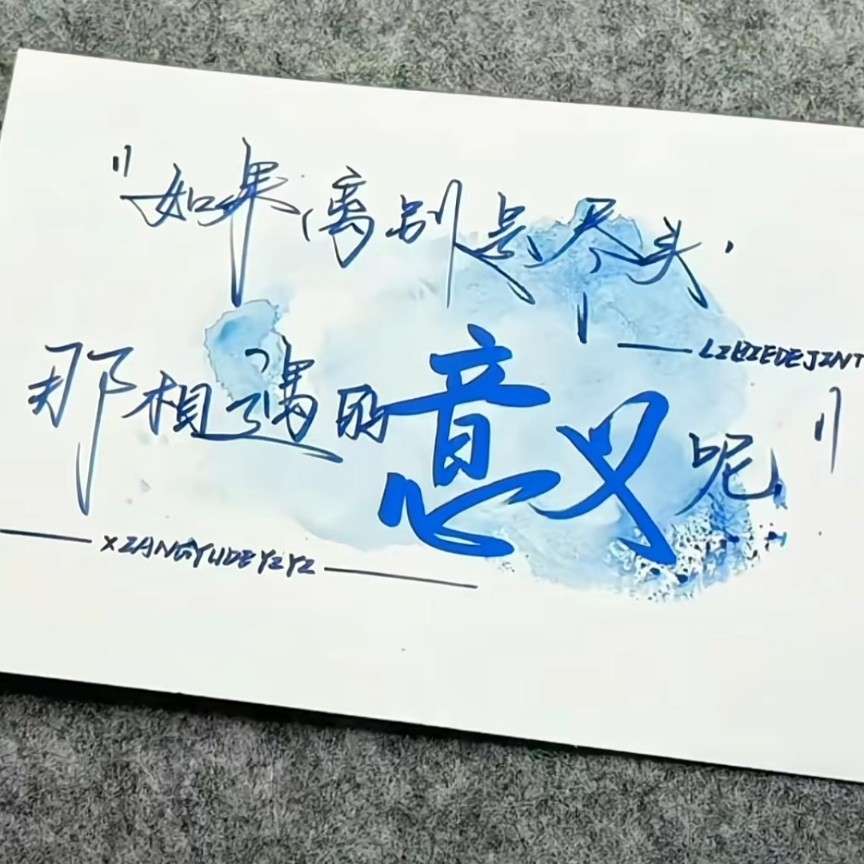 "如果离别是尽头,
LIBIEDEJINT
那相遇的意义呢"
XIANGYUDEYIYI